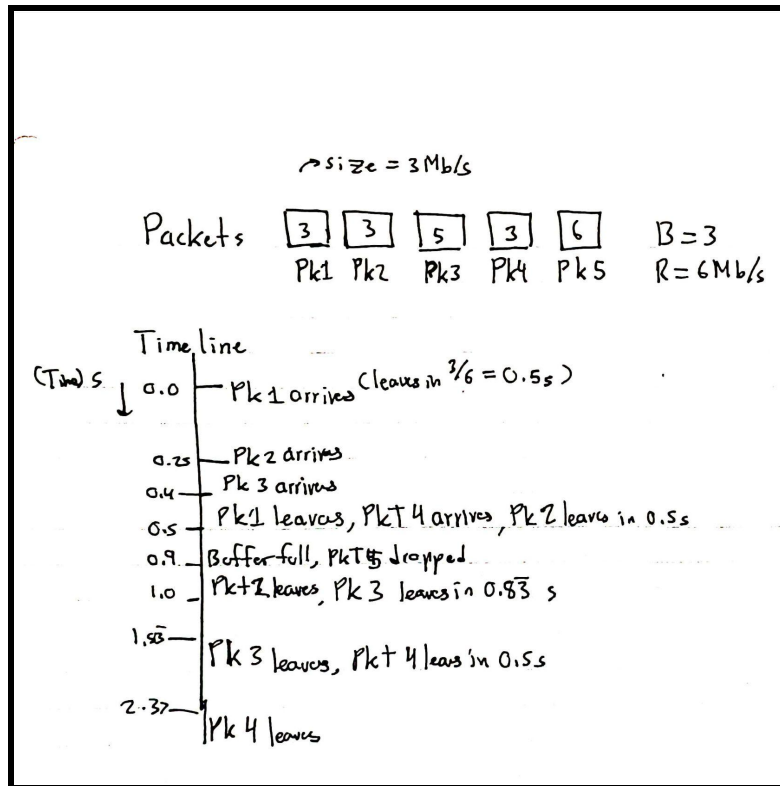 size = 3 Mb/s
Packets 3 3 5 3 6 B = 3
Pk1 Pk2 Pk3 Pk4 Pk5 R = 6 Mb/s
Time line
(Time) s 0.0 Pk 1 arrives (leaves in 3/6 = 0.5s)
0.25 Pk 2 arrives
0.4 Pk 3 arrives
0.5 Pk1 leaves, PkT 4 arrives, Pk 2 leaves in 0.5s
0.9 Buffer full, PkT 5 dropped
1.0 Pkt 2 leaves, Pk 3 leaves in 0.83̅ s
Pk 3 leaves, Pkt 4 leavs in 0.5s
2.37 Pk 4 leaves